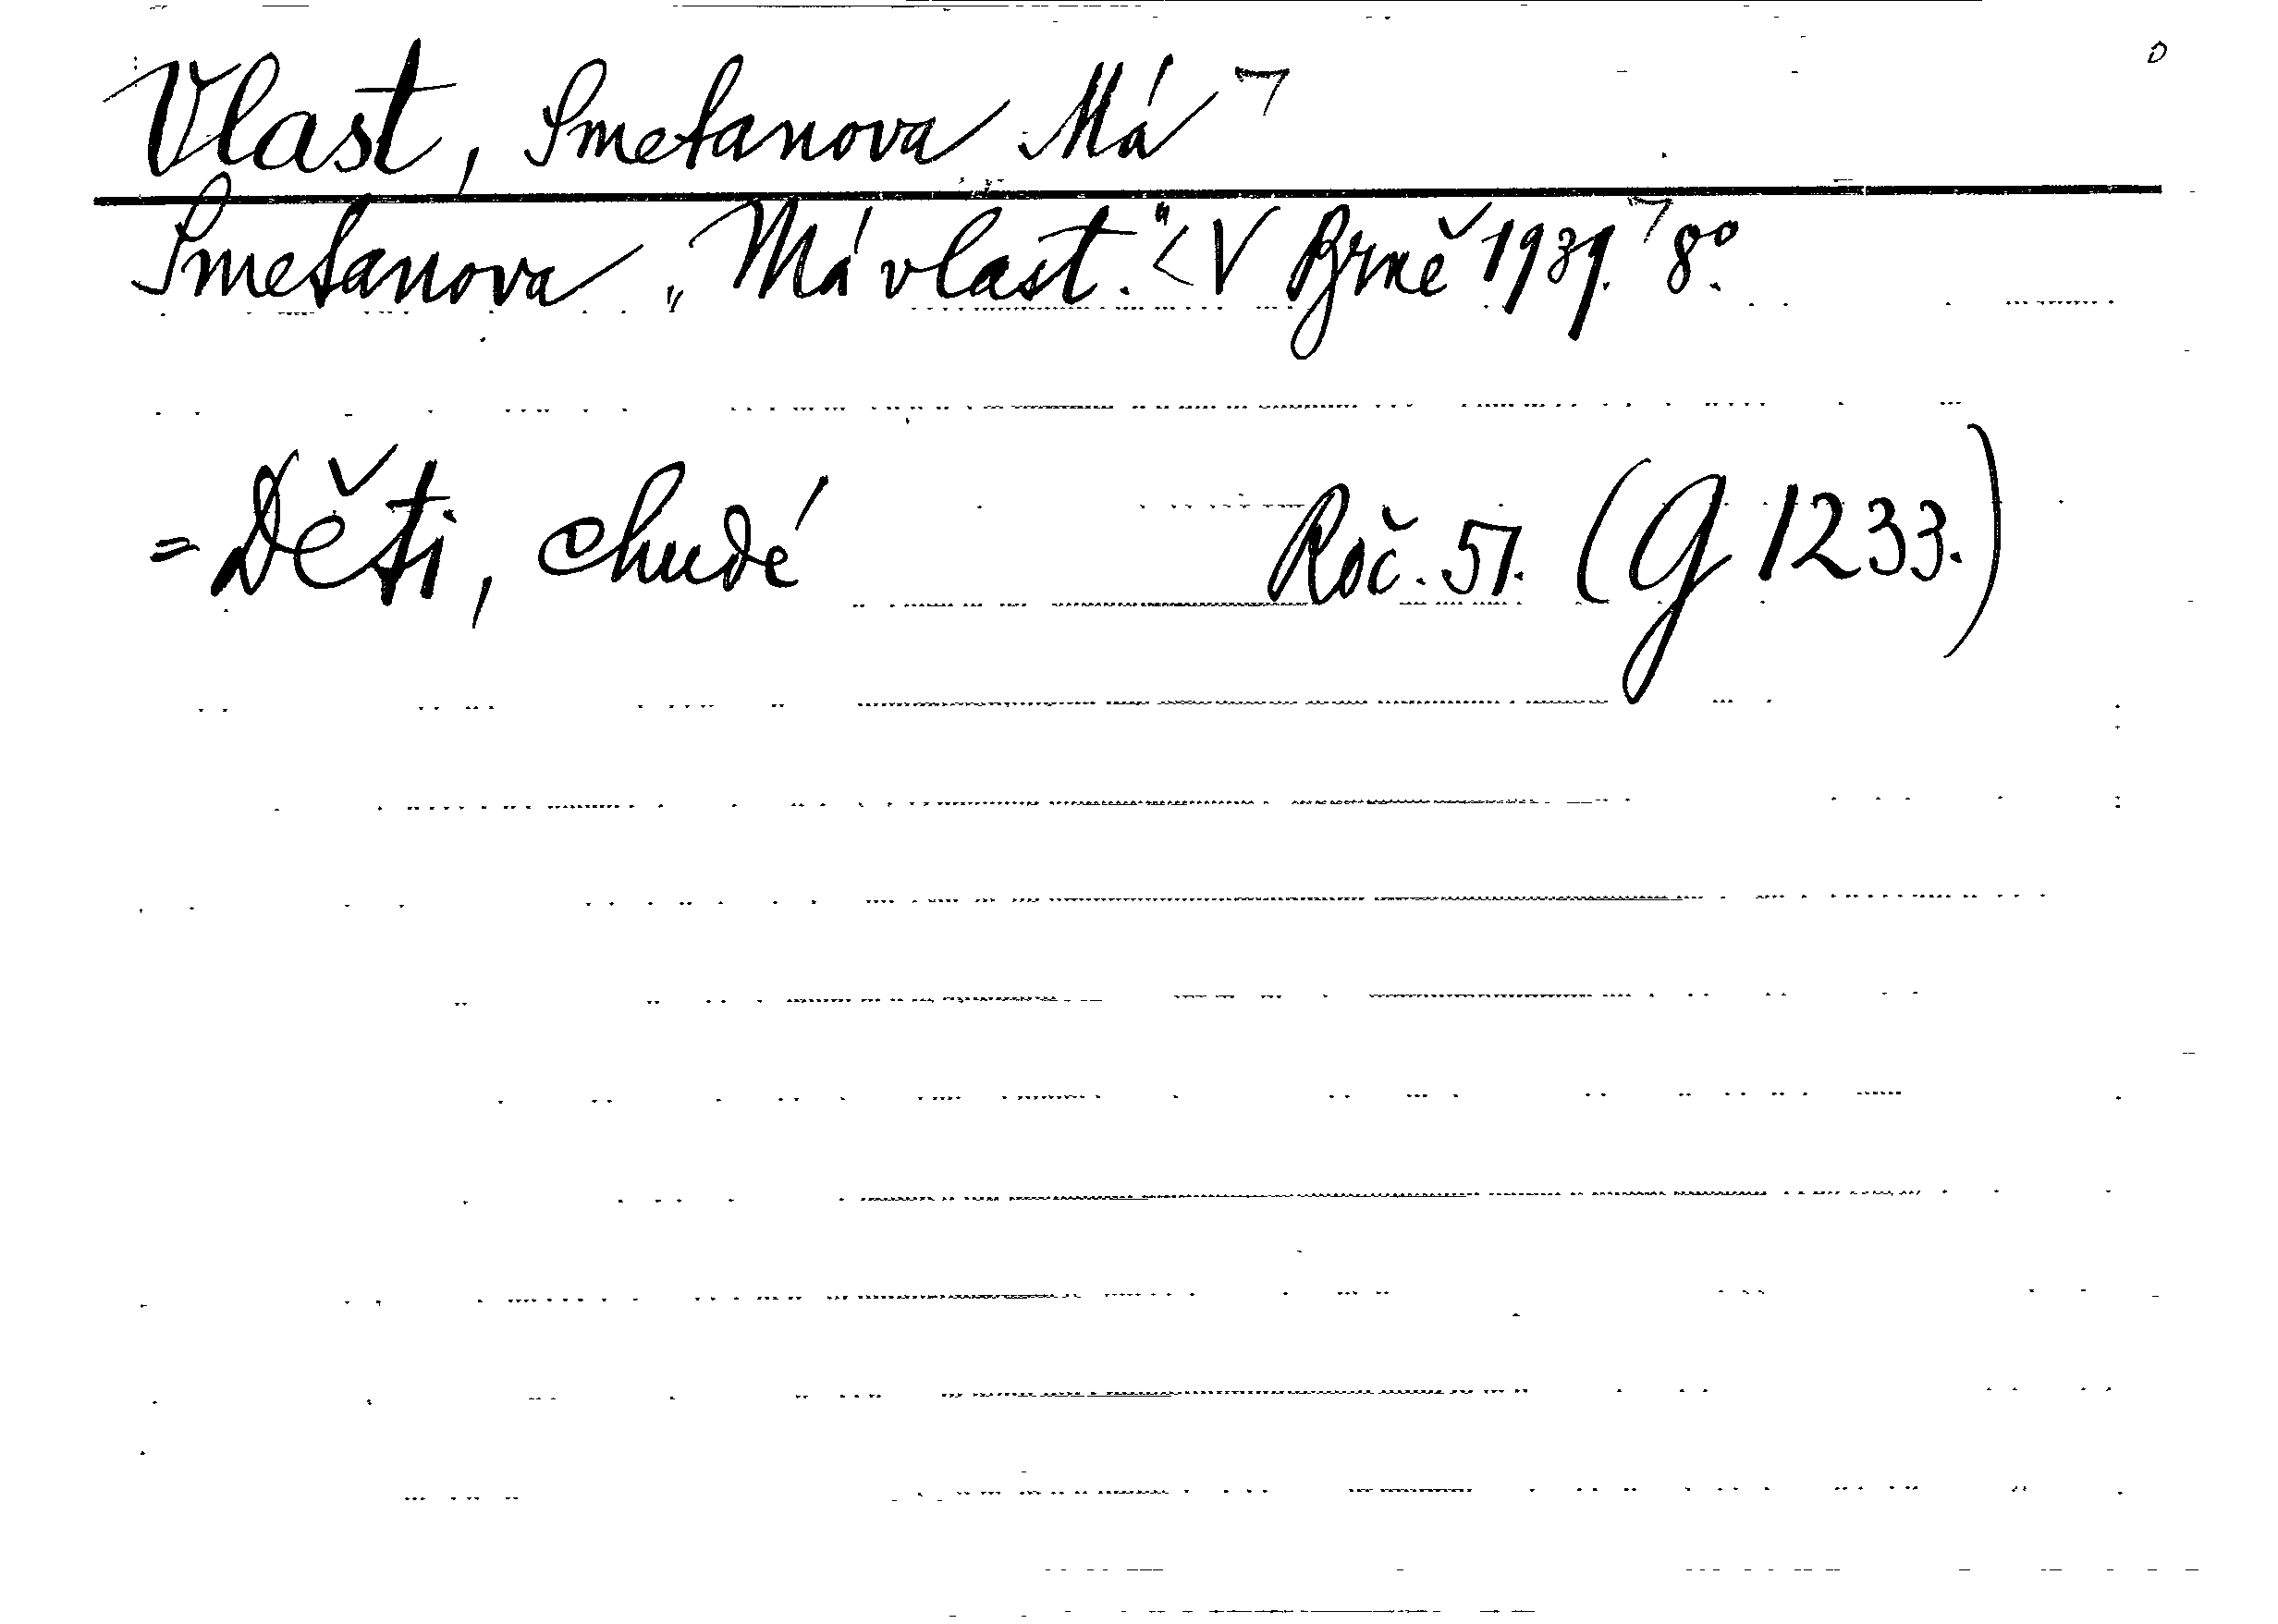 Vlast, Smetanova Má ¬
Smetanova „Má vlast.“ <V Brně 1939.¬ 8º.
=Děti, chudé Roč. 51. (G 1233.)